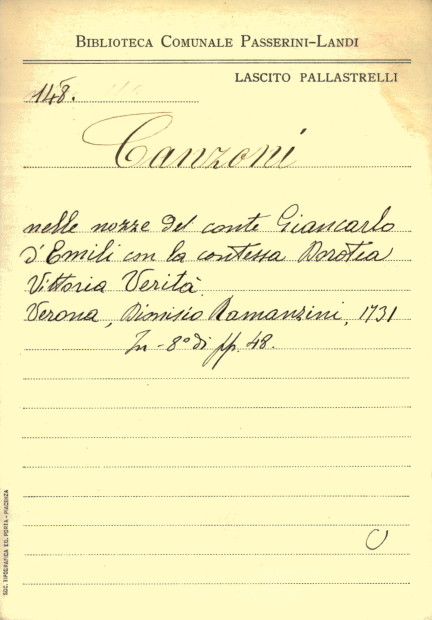 BIBLIOTECA COMUNALE PASSERINI-LANDI
LASCITO PALLASTRELLI
148.
Canzoni
nelle nozze del conte Giancarlo
d'Emili con la contessa Dorotea
Vittoria Verità.
Verona, Dionisio Ramanzini, 1731
In-8° di pp. 48.
SOC. TIPOGRAFICA ED. PORTA - PIACENZA